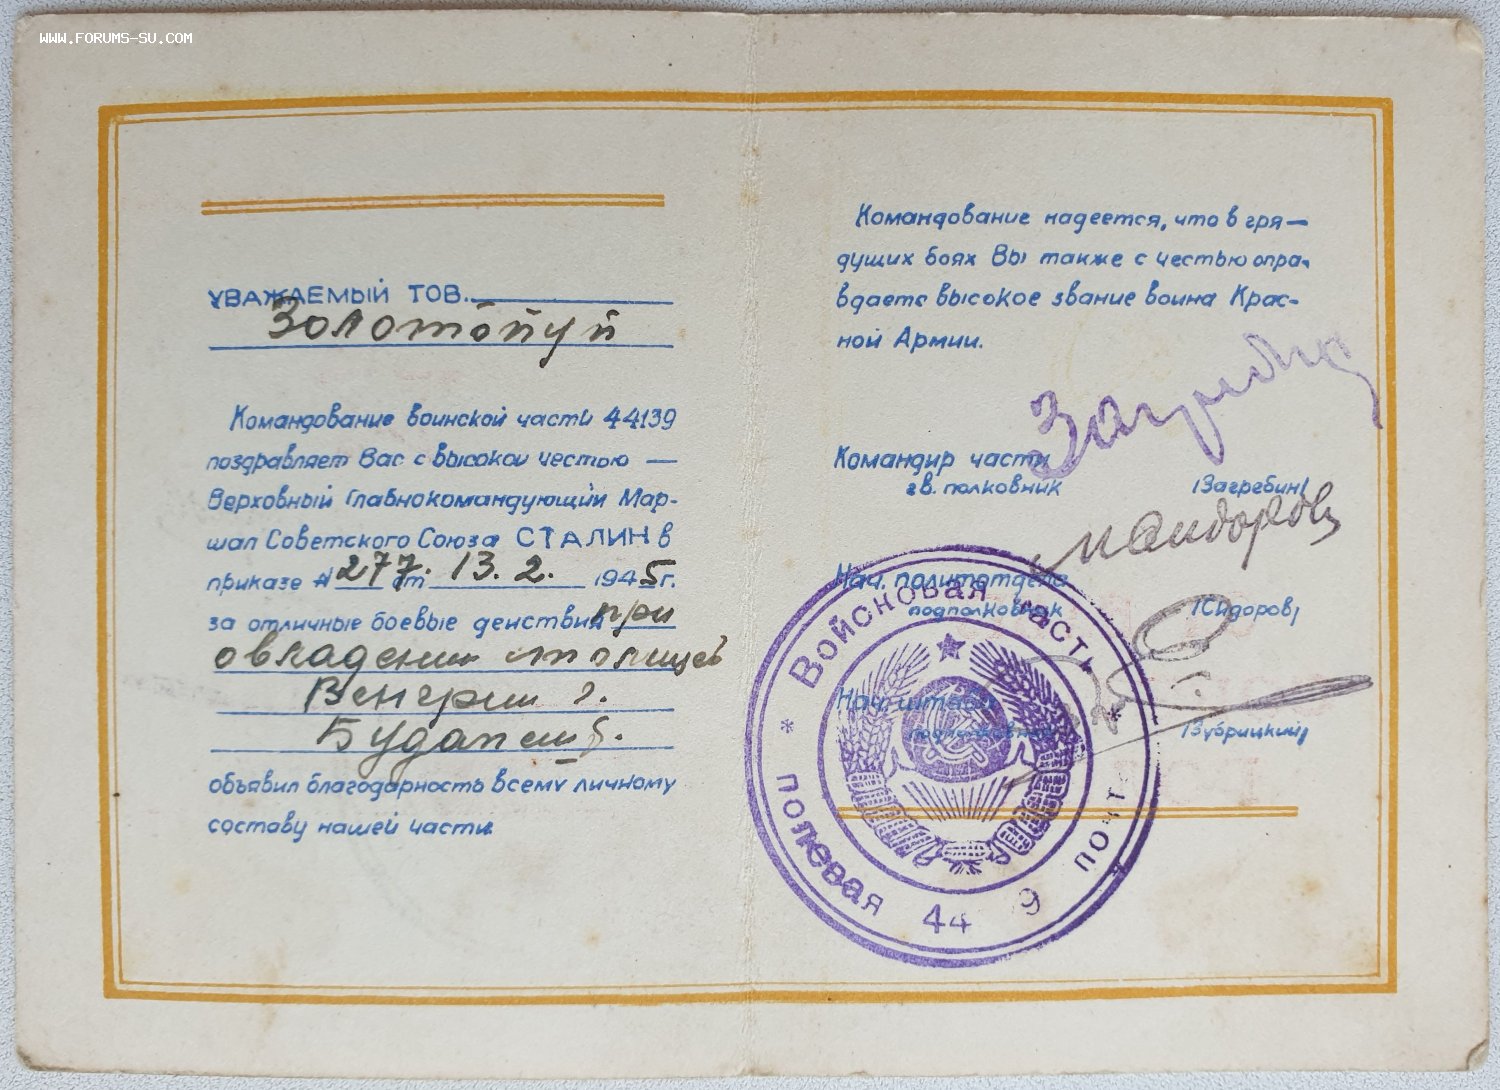 WWW.FORUMS-SU.COM
УВАЖАЕМЫЙ ТОВ.
Золотопуп
Командование воинской части 44139
поздравляет Вас с высокой честью —
Верховный Главнокомандующий Мар-
шал Советского Союза СТАЛИН в
приказе № 277. от 13. 2. 1945 г.
за отличные боевые действия при
овладении столицей
Венгрии г.
Будапешт.
объявил благодарность всему личному
составу нашей части.
Командование надеется, что в гря-
дущих боях Вы также с честью опра-
вдаете высокое звание воина Крас-
ной Армии.
Командир части
гв. полковник /Загребин/
Нач. политотдела
подполковник /Сидоров/
Нач. штаба
подполковник /Зубрицкий/
* Войсковая часть *
полевая 44 9 почт